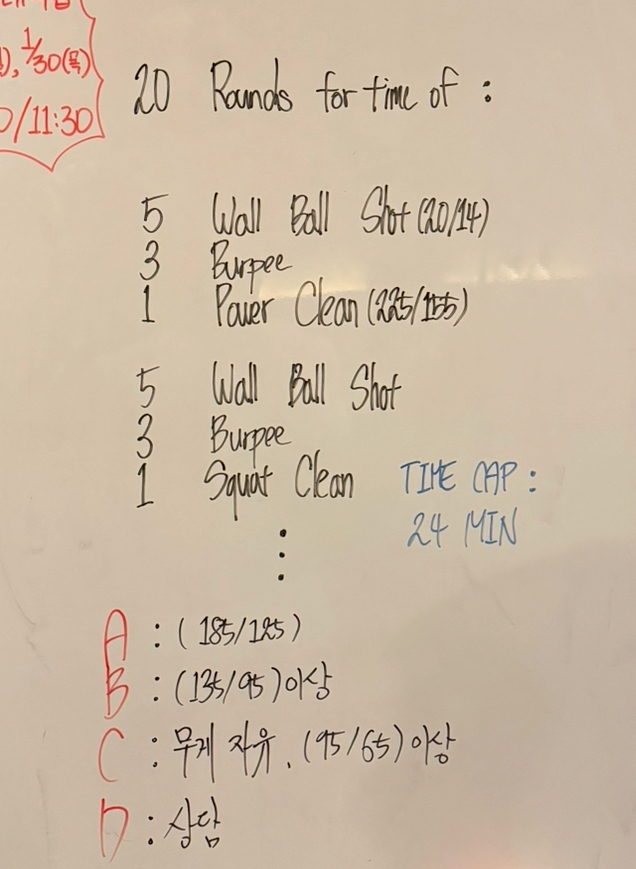 ), 1/30(목)
0/11:30
20 Rounds for time of :
5 Wall Ball Shot (20/14)
3 Burpee
1 Power Clean (225/155)
5 Wall Ball Shot
3 Burpee
1 Squat Clean
TIME CAP :
24 MIN
⋮
A : ( 185/125)
B : (135/95)이상
C : 무게 자유. (95/65) 이상
D : 상담